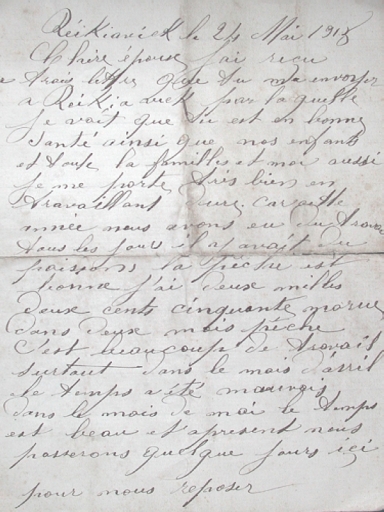 Reikiavick le 24 Mai 191
Chère épouse j'ai reçu
trois lettre que tu ma envoyer
a Reikiavick par laquelle
je voit que tu est en bonne
santé ainsi que nos enfants
et toute la familles et moi aussi
je me porte très bien en
travaillant dure. car cette
année nous avons eu du travail
tous les jours il y avait du
poissons la pêche est
bonne j'ai deux milles
deux cents cinquante morue
dans deux mois pêche
C'est beaucoup de travail
surtout dans le mois d'avril
le temps a été mauvois
dans le mois de mai le temps
est beau et apresent nous
passerons quelque jours içi
pour nous reposer